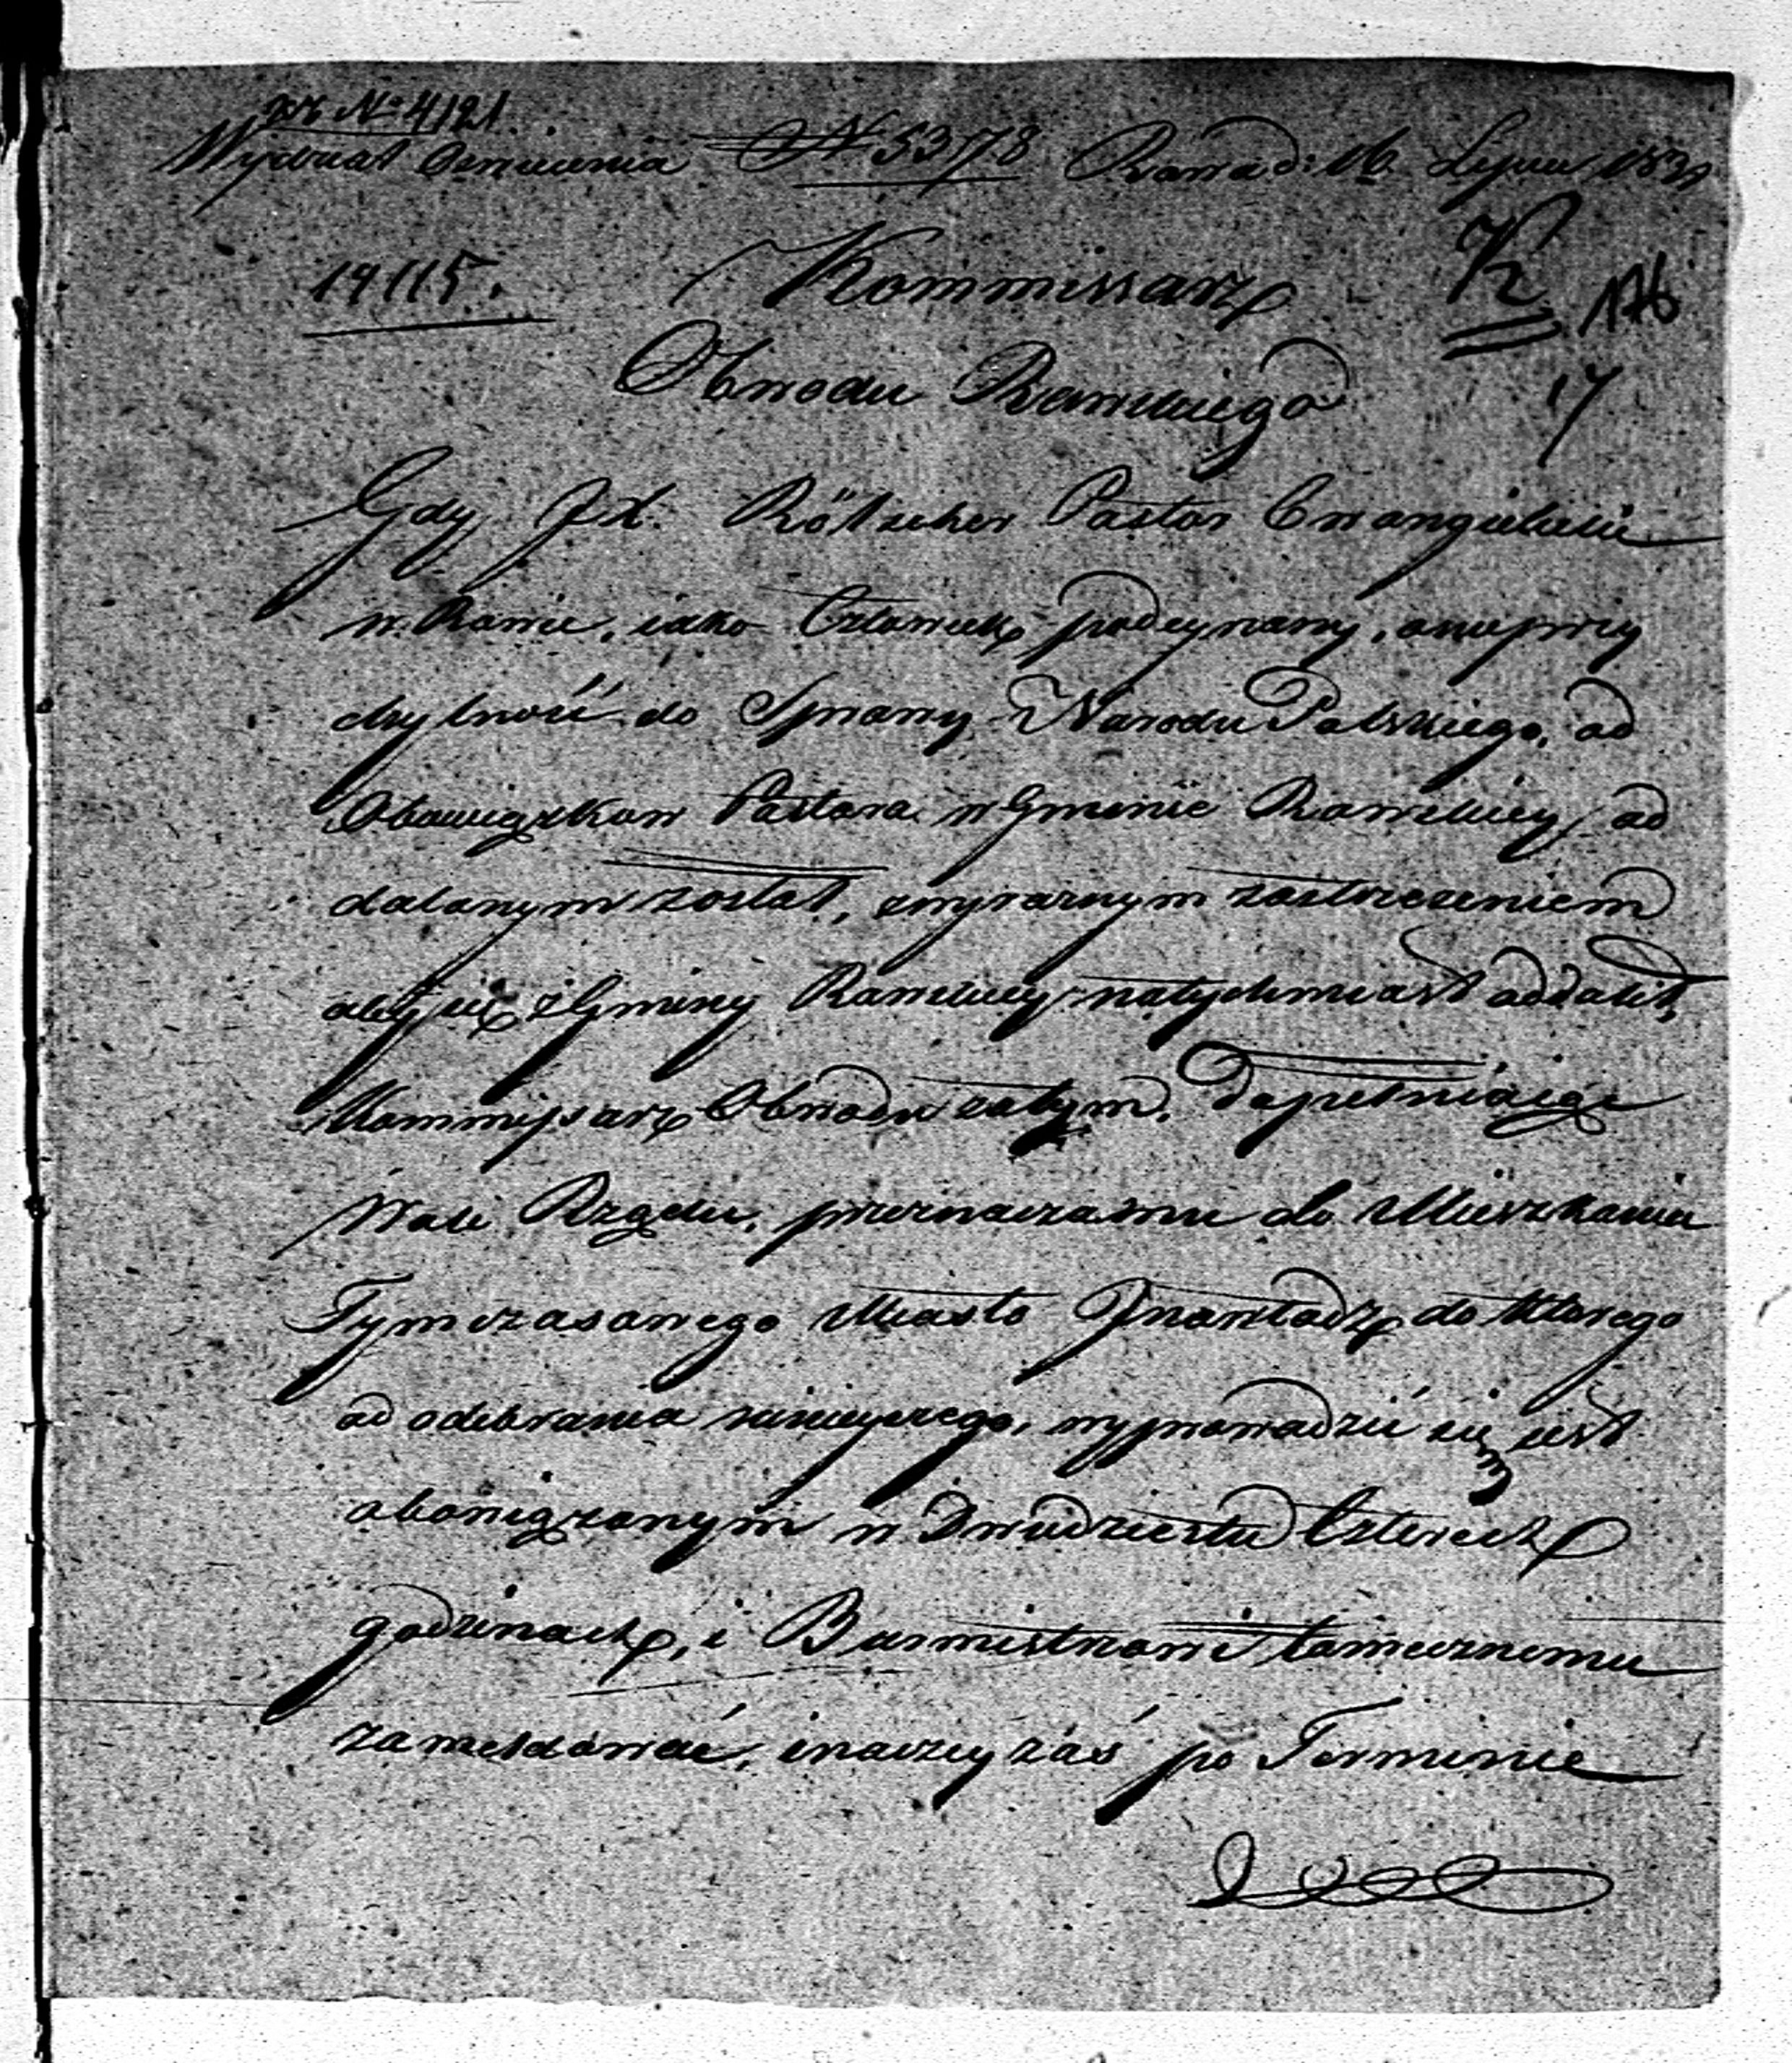 N° 4121.
Wydział Oswiecenia N 5378 Rawa d: 16 Lipca 1831
19115.
Kommissarz
176
Obwodu Rawskiego
17
Gdy JX. Rötscher Pastor Ewangielicki
w Rawie, iako Człowiek podeyrzany, o nieprzy
chylność do Sprawy Narodu Polskiego, od
Obowiązkow Pastora w Gminie Rawskiey od
dalonym został, z wyraznym zastrzezeniem
aby się z Gminy Rawskiey natychmiast oddalił,
Kommissarz Obwodu zatym, dopełniaiąc
Woli Rządu, przeznacza mu do Mieszkania
Tymczasowego Miasto Inowłodz do ktorego
od odebrania ninieyszego, wyprowadzić się iest
obowiązanym w Dwudziestu Czterech
godzinach, i Burmistrzowi tamecznemu
zameldować, inaczey zaś po Terminie